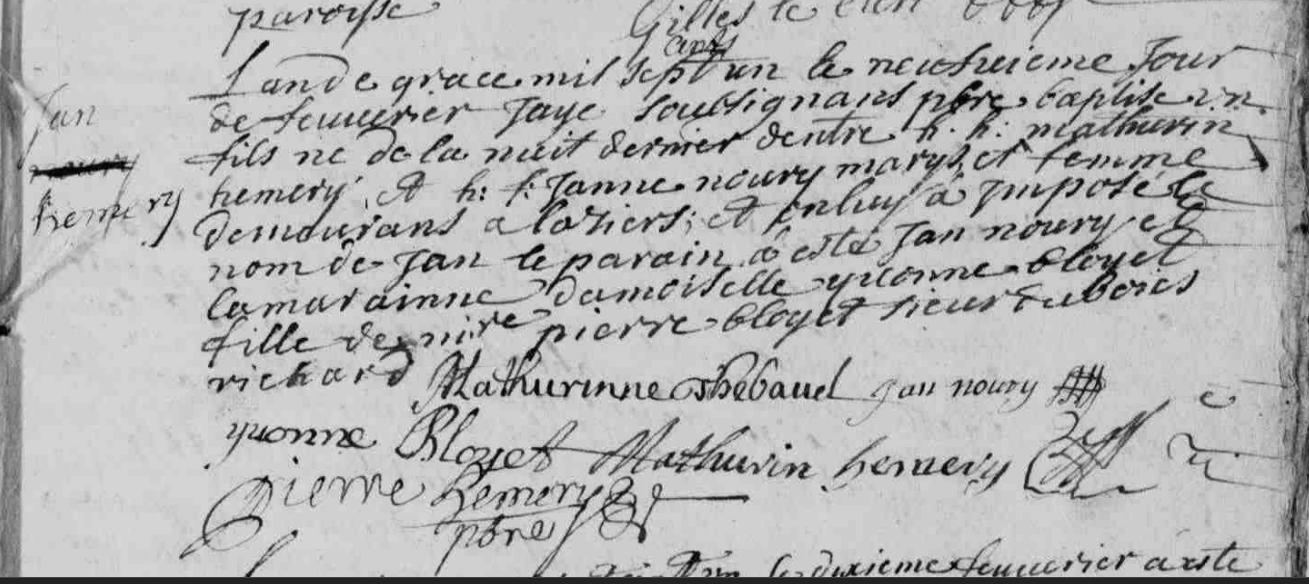 paroisse
Gilles le
cents
Jan
noury
hemery
L an de grace mil sept un le neufvieme Jour
de feuvrier Jaye soubsignans pbre baptise un
fils ne de la nuit dernier dentre h. h. mathurin
hemery, et h: f: Janne noury marys et femme
demeurans a laziers; et enluy a Imposé le
nom de Jan le parain a esté Jan noury et
la marainne damoiselle yvonne bloyet
fille de pierre bloyet sieur du bois
richard Mathurinne Thebaud Jan noury
yvonne Bloyet Mathurin hemery
Pierre hemery
pbre
le dixieme feuvrier a este